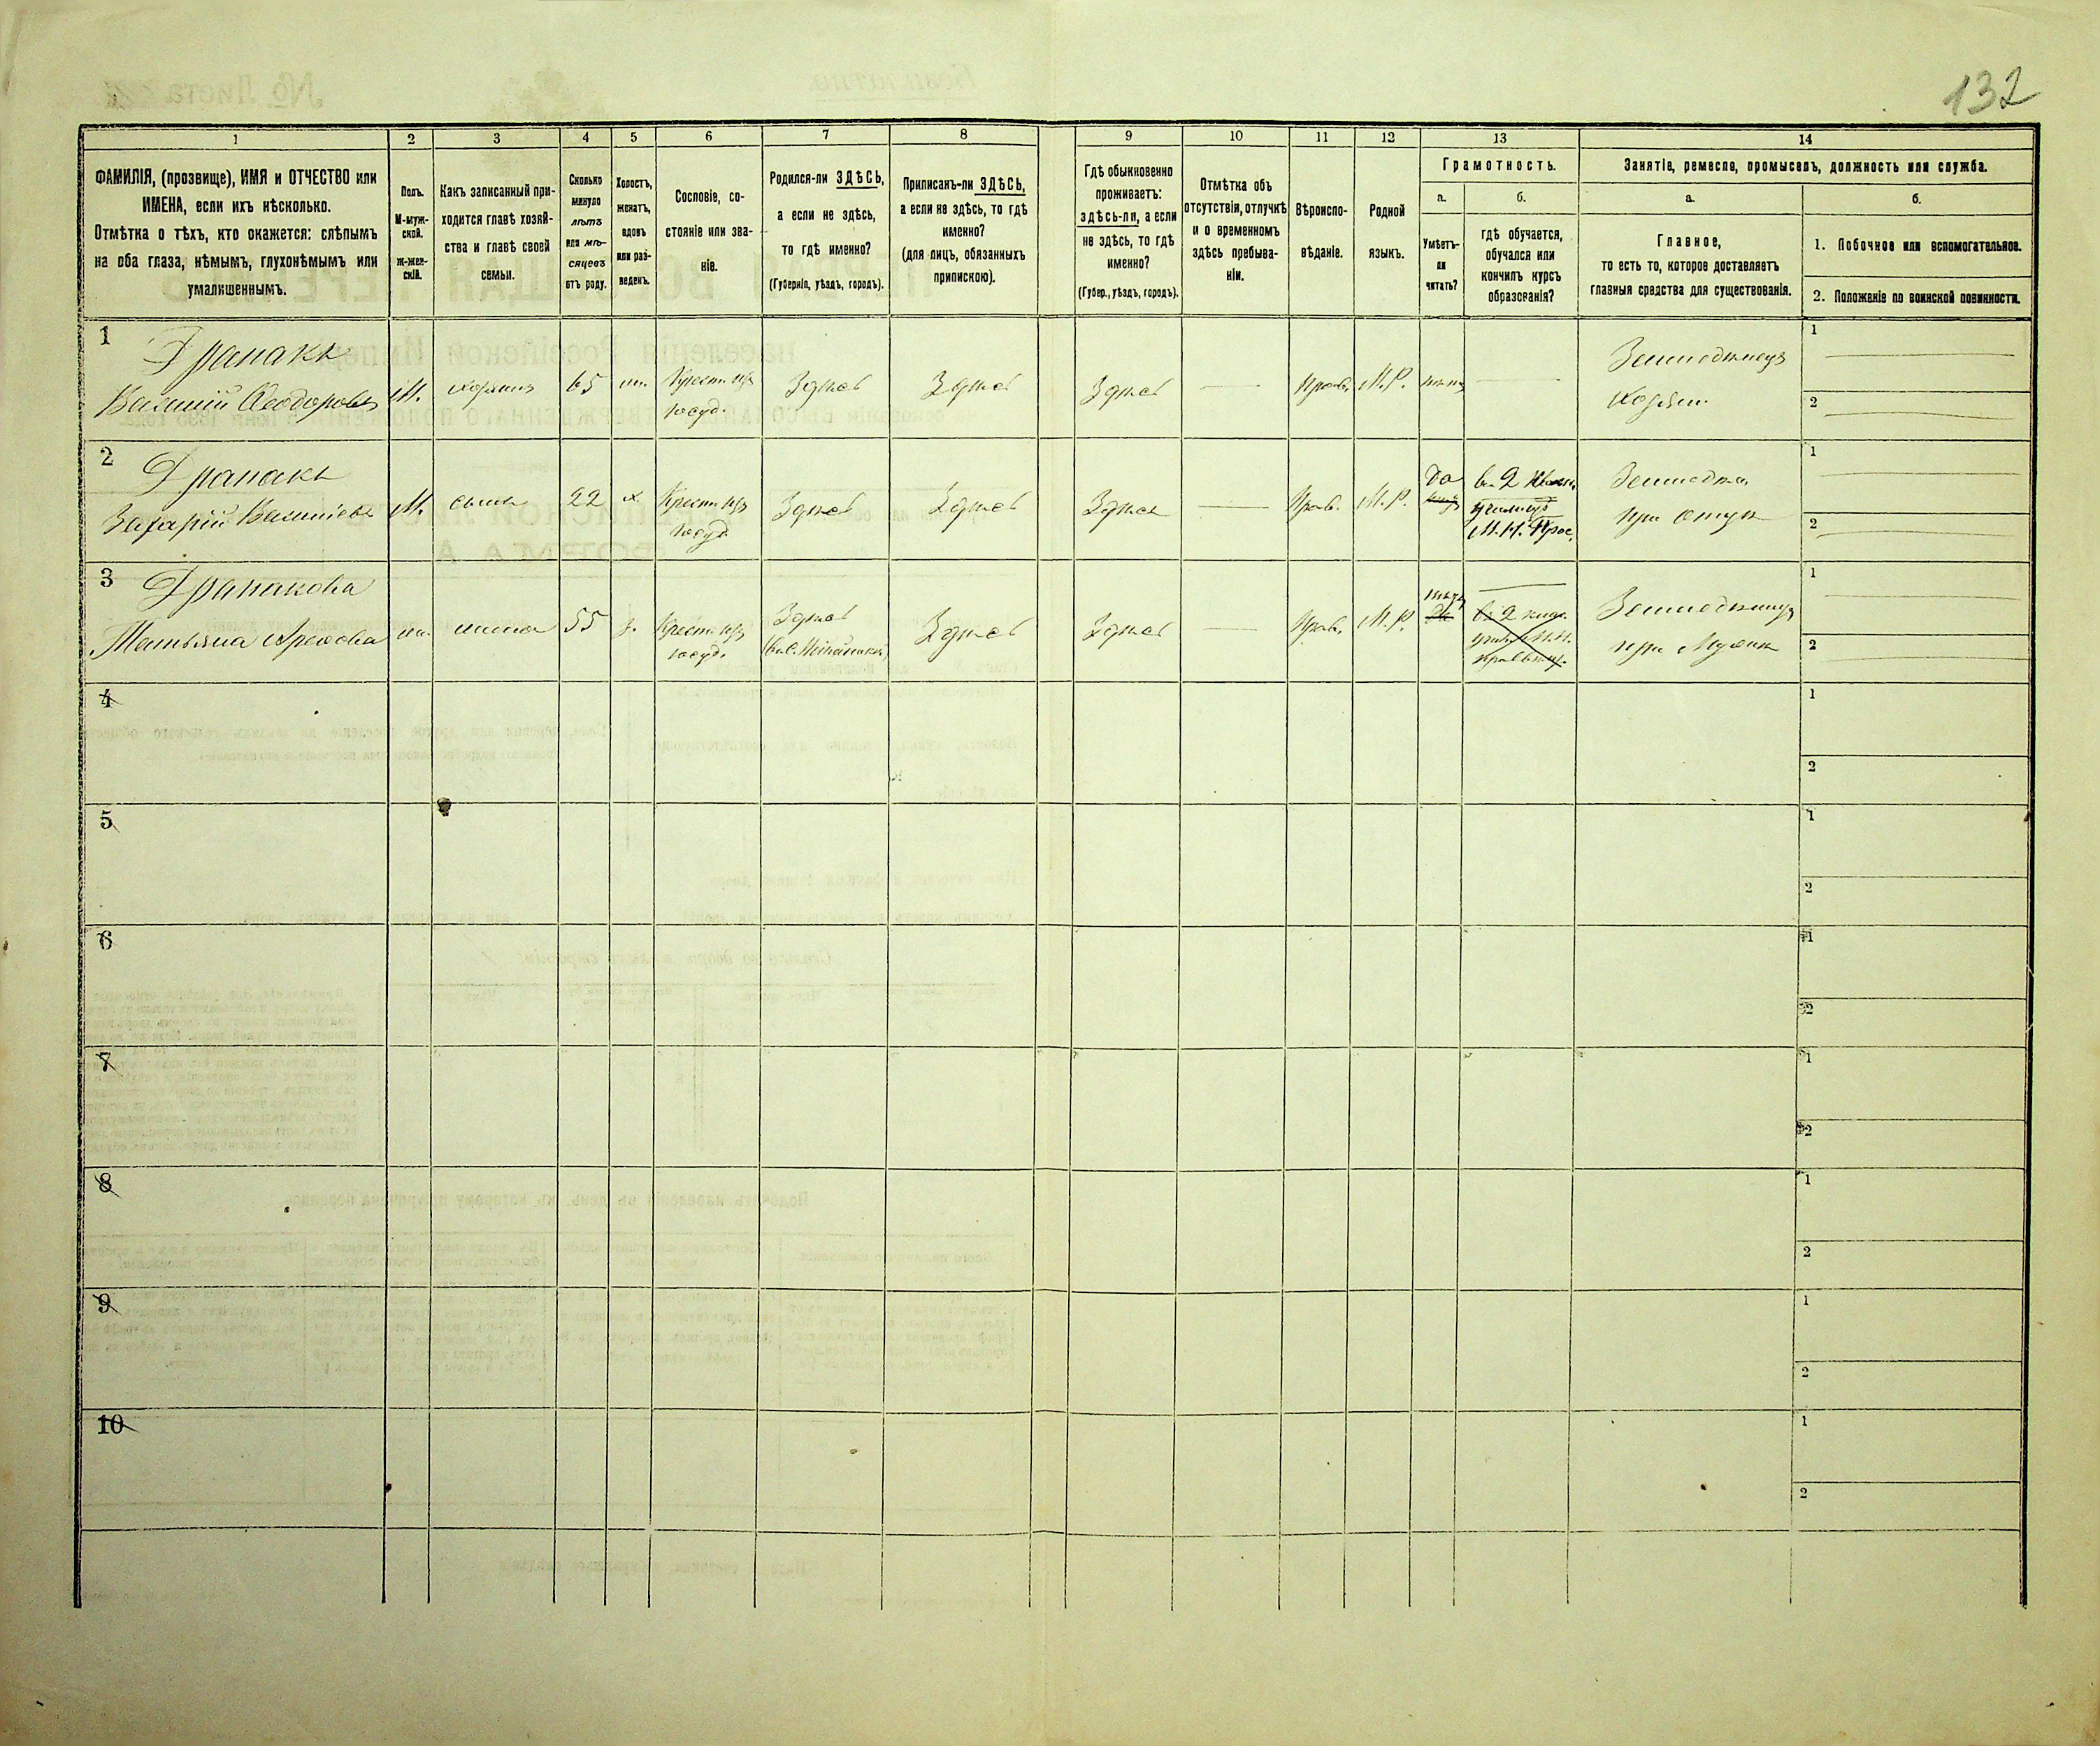 132
1 2 3 4 5 6 7 8 9 10 11 12 13 14
ФАМИЛІЯ, (прозвище), ИМЯ и ОТЧЕСТВО или
ИМЕНА, если ихъ нѣсколько.
Отмѣтка о тѣхъ, кто окажется: слѣпымъ
на оба глаза, нѣмымъ, глухонѣмымъ или
умалишеннымъ.
Полъ.
М-муж-
ской.
Ж-жен-
скій.
Какъ записанный при-
ходится главѣ хозяй-
ства и главѣ своей
семьи.
Сколько
минуло
лѣтъ
или мѣ-
сяцевъ
отъ роду.
Холостъ,
женатъ,
вдовъ
или раз-
веденъ.
Сословіе, со-
стояніе или зва-
ніе.
Родился-ли ЗДѢСЬ,
а если не здѣсь,
то гдѣ именно?
(Губернія, уѣздъ, городъ).
Приписанъ-ли ЗДѢСЬ,
а если не здѣсь, то гдѣ
именно?
(для лицъ, обязанныхъ
припискою).
Гдѣ обыкновенно
проживаетъ:
здѣсь-ли, а если
не здѣсь, то гдѣ
именно?
(Губер., уѣздъ, городъ).
Отмѣтка объ
отсутствіи, отлучкѣ
и о временномъ
здѣсь пребыва-
ніи.
Вѣроиспо-
вѣданіе.
Родной
языкъ.
Грамотность.
а.
Умѣетъ-
ли
читать?
б.
гдѣ обучается,
обучался или
кончилъ курсъ
образованія?
Занятіе, ремесло, промыселъ, должность или служба.
а.
Главное,
то есть то, которое доставляетъ
главныя средства для существованія.
б.
1. Побочное или вспомогательное.
2. Положеніе по воинской повинности.
1
Драпакъ
Василій Ѳеодоровъ
М.
хозяинъ
65
жен.
Крест. изъ
госуд.
Здѣсь
Здѣсь
Здѣсь
Прав.
М.Р.
нѣтъ
Земледѣлецъ
хозяин.
1
2
2
Драпакъ
Захарій Васильевъ
М.
сынъ
22
х.
Крест. изъ
госуд.
Здѣсь
Здѣсь
Здѣсь
Прав.
М.Р.
да
нѣтъ
въ 2 клас.
училищѣ
М. Н. Прос.
Земледѣл.
при отцѣ
1
2
3
Драпакова
Татьяна
жена
55
з.
Крест. изъ
госуд.
Здѣсь
Здѣсь
Здѣсь
Прав.
М.Р.
нѣтъ
да
въ 2 клас.
Земледѣлица
при мужѣ
1
2
4
1
2
5
1
2
6
1
2
7
1
2
8
1
2
9
1
2
10
1
2